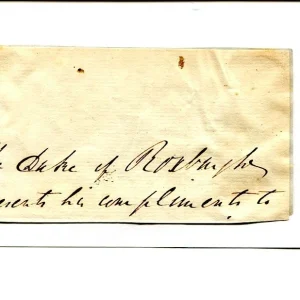 e Duke of Roxburghe
esents his compliments to